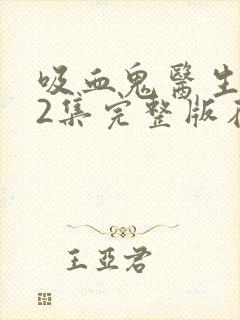 吸血鬼醫生
2集完整版
王亞君